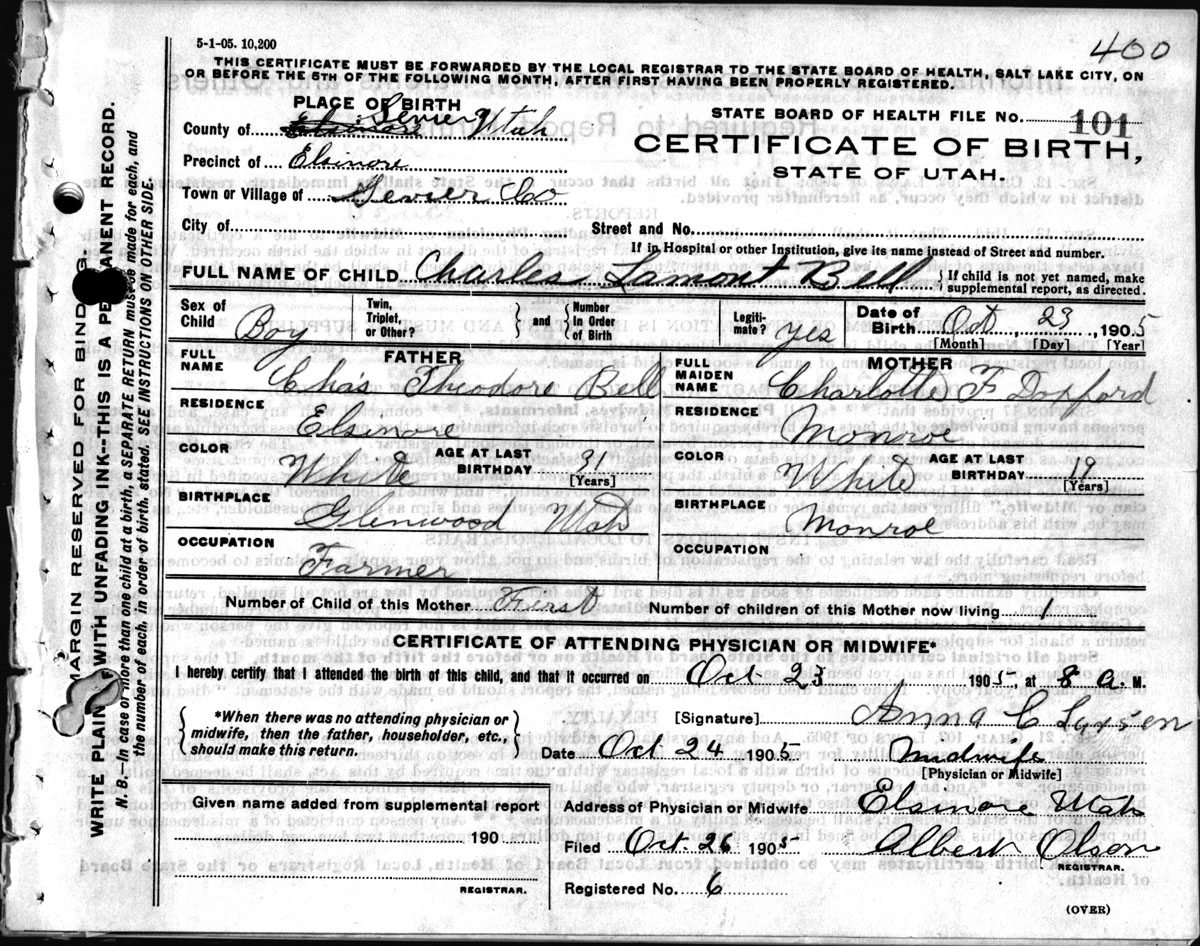 400
5-1-05. 10,200
THIS CERTIFICATE MUST BE FORWARDED BY THE LOCAL REGISTRAR TO THE STATE BOARD OF HEALTH, SALT LAKE CITY, ON
OR BEFORE THE 5TH OF THE FOLLOWING MONTH, AFTER FIRST HAVING BEEN PROPERLY REGISTERED.
PLACE OF BIRTH
County of Elsinore Sevier Utah
Precinct of Elsinore
Town or Village of Sevier Co
STATE BOARD OF HEALTH FILE No. 101
CERTIFICATE OF BIRTH,
STATE OF UTAH.
City of Street and No.
If in Hospital or other Institution, give its name instead of Street and number.
FULL NAME OF CHILD Charles Lamont Bell { If child is not yet named, make
supplemental report, as directed.
Sex of Child Boy Twin, Triplet, or Other? } and { Number In Order of Birth Legiti-mate? Yes Date of Birth Oct, 23, 1905
[Month] [Day] [Year]
FATHER
FULL NAME Chas Theodore Bell
RESIDENCE Elsinore
COLOR White AGE AT LAST BIRTHDAY 31
[Years]
BIRTHPLACE Glenwood Utah
OCCUPATION Farmer
MOTHER
FULL MAIDEN NAME Charlotte F
RESIDENCE Monroe
COLOR White AGE AT LAST BIRTHDAY 19
[Years]
BIRTHPLACE Monroe
OCCUPATION
Number of Child of this Mother First Number of children of this Mother now living 1
CERTIFICATE OF ATTENDING PHYSICIAN OR MIDWIFE*
I hereby certify that I attended the birth of this child, and that it occurred on Oct 23 1905, at 8 a M.
{ *When there was no attending physician or
midwife, then the father, householder, etc.,
should make this return. }
[Signature] Anna C
Date Oct 24 1905 Midwife
[Physician or Midwife]
Given name added from supplemental report
190
REGISTRAR.
Address of Physician or Midwife Elsinore Utah
Filed Oct. 26 1905 Albert Olson
REGISTRAR.
Registered No. 6
(OVER)
MARGIN RESERVED FOR BINDING.
WRITE PLAINLY WITH UNFADING INK--THIS IS A PERMANENT RECORD.
N. B.--In case of more than one child at a birth, a SEPARATE RETURN must be made for each, and
the number of each, in order of birth, stated. SEE INSTRUCTIONS ON OTHER SIDE.